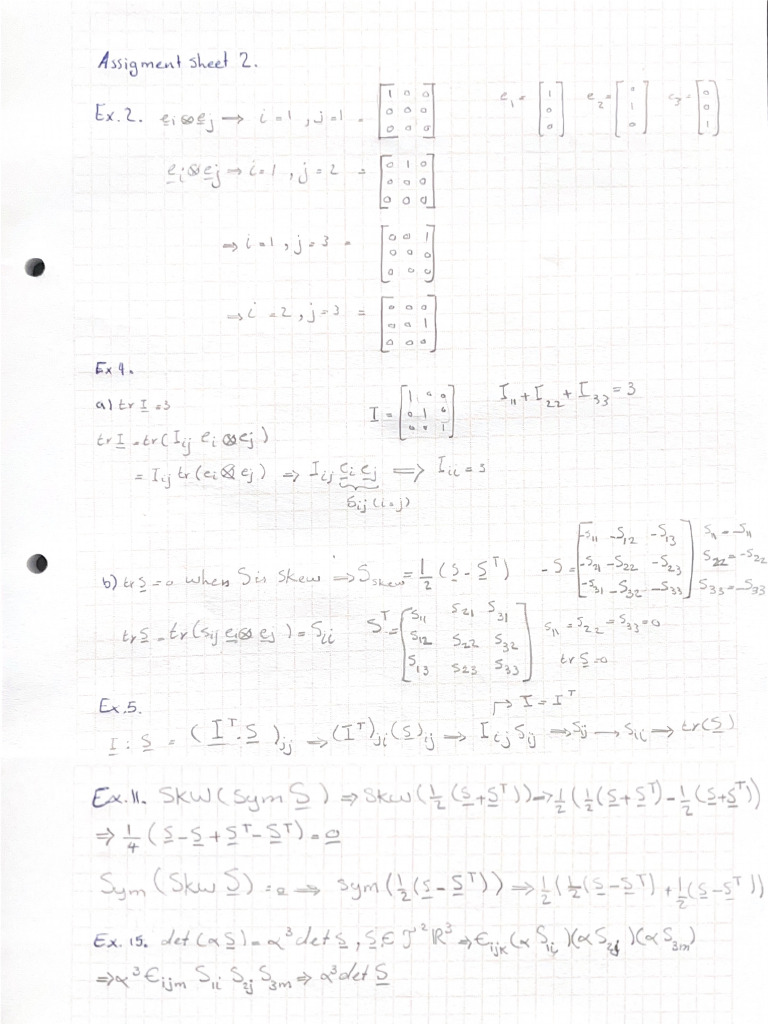 Assigment sheet 2.
Ex.2. e̲i⊗e̲j → i=1, j=1 = [1 0 0; 0 0 0; 0 0 0] e₁ = [1; 0; 0] e₂ = [0; 1; 0] e₃ = [0; 0; 1]
e̲i⊗e̲j → i=1, j=2 = [0 1 0; 0 0 0; 0 0 0]
⇒ i=1, j=3 = [0 0 1; 0 0 0; 0 0 0]
⇒ i=2, j=3 = [0 0 0; 0 0 1; 0 0 0]
Ex 4.
a) tr I̲ = 3 I = [1 0 0; 0 1 0; 0 0 1] I₁₁ + I₂₂ + I₃₃ = 3
tr I̲ = tr(Iij ei⊗ej)
= Iij tr(ei⊗ej) ⇒ Iij e̲i e̲j ⟹ Iii = 3
δij (i=j)
b) tr S̲ = 0 when S is skew ⇒ Sskew = ½ (S̲ - S̲ᵀ) -S = [-S₁₁ -S₁₂ -S₁₃; -S₂₁ -S₂₂ -S₂₃; -S₃₁ -S₃₂ -S₃₃] S₁₁ = -S₁₁ S₂₂ = -S₂₂ S₃₃ = -S₃₃
tr S̲ = tr(Sij e̲i⊗ej) = Sii Sᵀ = [S₁₁ S₂₁ S₃₁; S₁₂ S₂₂ S₃₂; S₁₃ S₂₃ S₃₃] S₁₁ = S₂₂ = S₃₃ = 0
tr S̲ = 0
Ex.5. ↱ I = Iᵀ
I̲ : S̲ = (I̲ᵀ·S̲)jj ⇒ (Iᵀ)ji (S̲)ij ⇒ Iij Sij ⇒ Sjj → Sii → tr(S̲)
Ex.11. Skw(Sym S̲) ⇒ Skw(½(S̲+S̲ᵀ)) ⇒ ½(½(S̲+S̲ᵀ) - ½(S̲+S̲ᵀ))
⇒ ¼ (S̲ - S̲ + S̲ᵀ - S̲ᵀ) = 0̲
Sym (Skw S̲) = 0 ⇒ sym(½(S̲ - S̲ᵀ)) ⇒ ½(½(S̲ - S̲ᵀ) + ½(S̲ - S̲ᵀ))
Ex. 15. det(αS̲) = α³ det S̲, S̲ ∈ T²ℝ³ ⇒ ∈ijk (αS₁i)(αS₂j)(αS₃m)
⇒ α³ ∈ijm S₁i S₂j S₃m ⇒ α³ det S̲